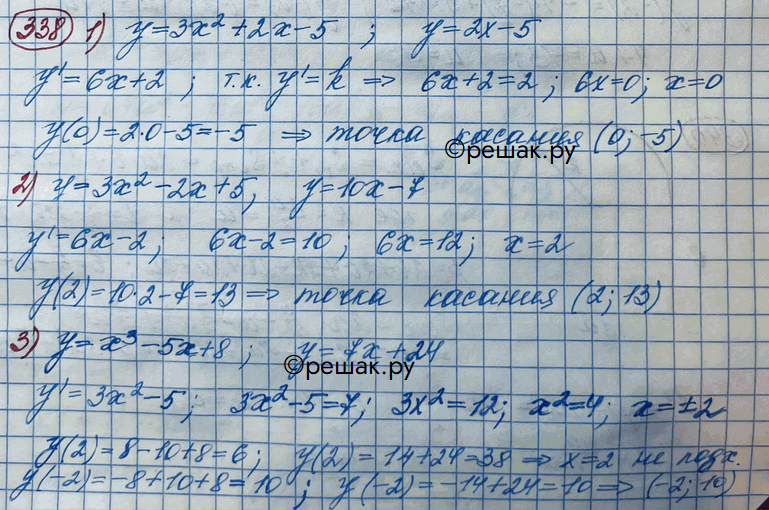 338 1) y=3x²+2x-5 ; y=2x-5
y'=6x+2 ; т.к. y'=k ⇒ 6x+2=2 ; 6x=0; x=0
y(0)=2·0-5=-5 ⇒ точка касания (0; -5)
©решак.ру
2) y=3x²-2x+5, y=10x-7
y'=6x-2; 6x-2=10 ; 6x=12; x=2
y(2)=10·2-7=13 ⇒ точка касания (2; 13)
3) y=x³-5x+8 ; y=7x+24
©решак.ру
y'=3x²-5; 3x²-5=7; 3x²=12; x²=4; x=±2
y(2)=8-10+8=6; y(2)=14+24=38 ⇒ x=2 не подх.
y(-2)=-8+10+8=10 ; y(-2)=-14+24=10 ⇒ (-2; 10)